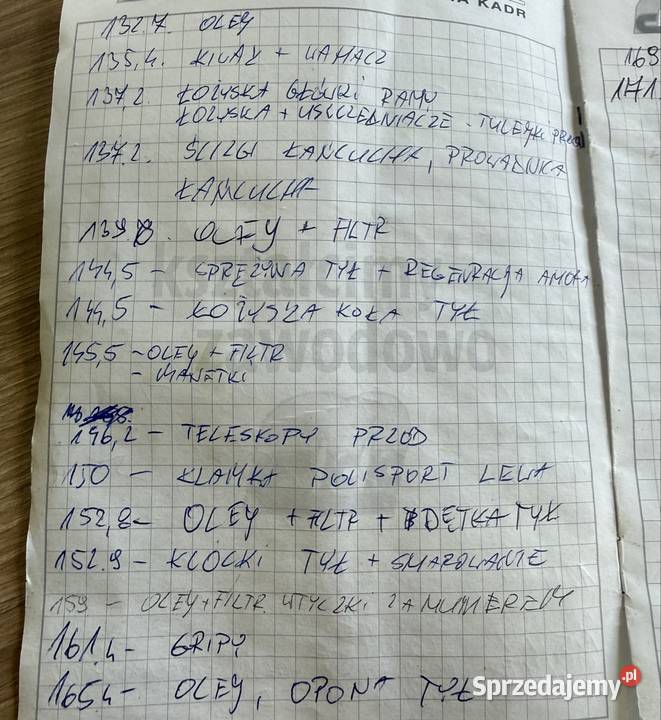 A KADR
132.7. OLEY
135,4. KIWAK + ŁAMACZ
137,2. ŁOŻYSKA GŁÓWKI RAMY
ŁOŻYSKA + USZCZELNIACZE - TULEJKI PRZÓD
137.2. ŚLIZG ŁAŃCUCHA, PROWADNICA
ŁAŃCUCHA
139,8. OLEY + FILTR
144,5 - SPRĘŻYNA TYŁ + REGENRACJA AMORA
144,5 - ŁOŻYSKA KOŁA TYŁ
145,5 - OLEY + FILTR
- MANETKI
zawodowo
146,2 - TELESKOPY PRZÓD
150 - KLAMKA POLISPORT LEWA
152,8 - OLEY + FILTR + DĘTKA TYŁ
152.9 - KLOCKI TYŁ + SMAROWANIE
159 - OLEY + FILTR WTYCZKI ZA NUMEREM
161.4 - GRIPY
165.4 - OLEY, OPONA TYŁ
169
171
Sprzedajemy.pl